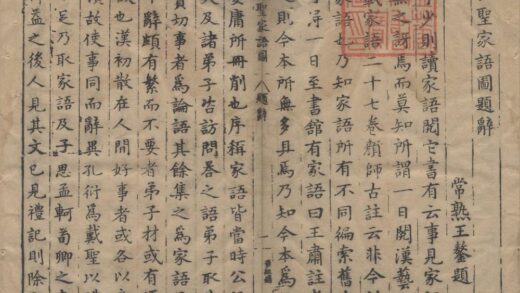 聖家語圖題辭
常熟王鏊題
少則讀家語閱它書有云事見家
無之訝焉而莫知所謂一日閱漢藝
載家語二十七卷顏師古註云非今
家語也乃知家語所有不同徧索舊
一日至書舘有家語曰王肅註
則今本所無多具焉乃知今本為
聖家語圖 題辭
妄庸所刪削也序稱家語皆當時公
及諸弟子咨訪問荅之語弟子取
切事者為論語其餘集之為家語
辭頗有繁而不要者弟子材或有
也漢初散在人間好事者或各以
故使事同而辭異孔衍為戴聖以
足乃取家語及子思孟軻荀卿之
益之後人見其文已見禮記則除